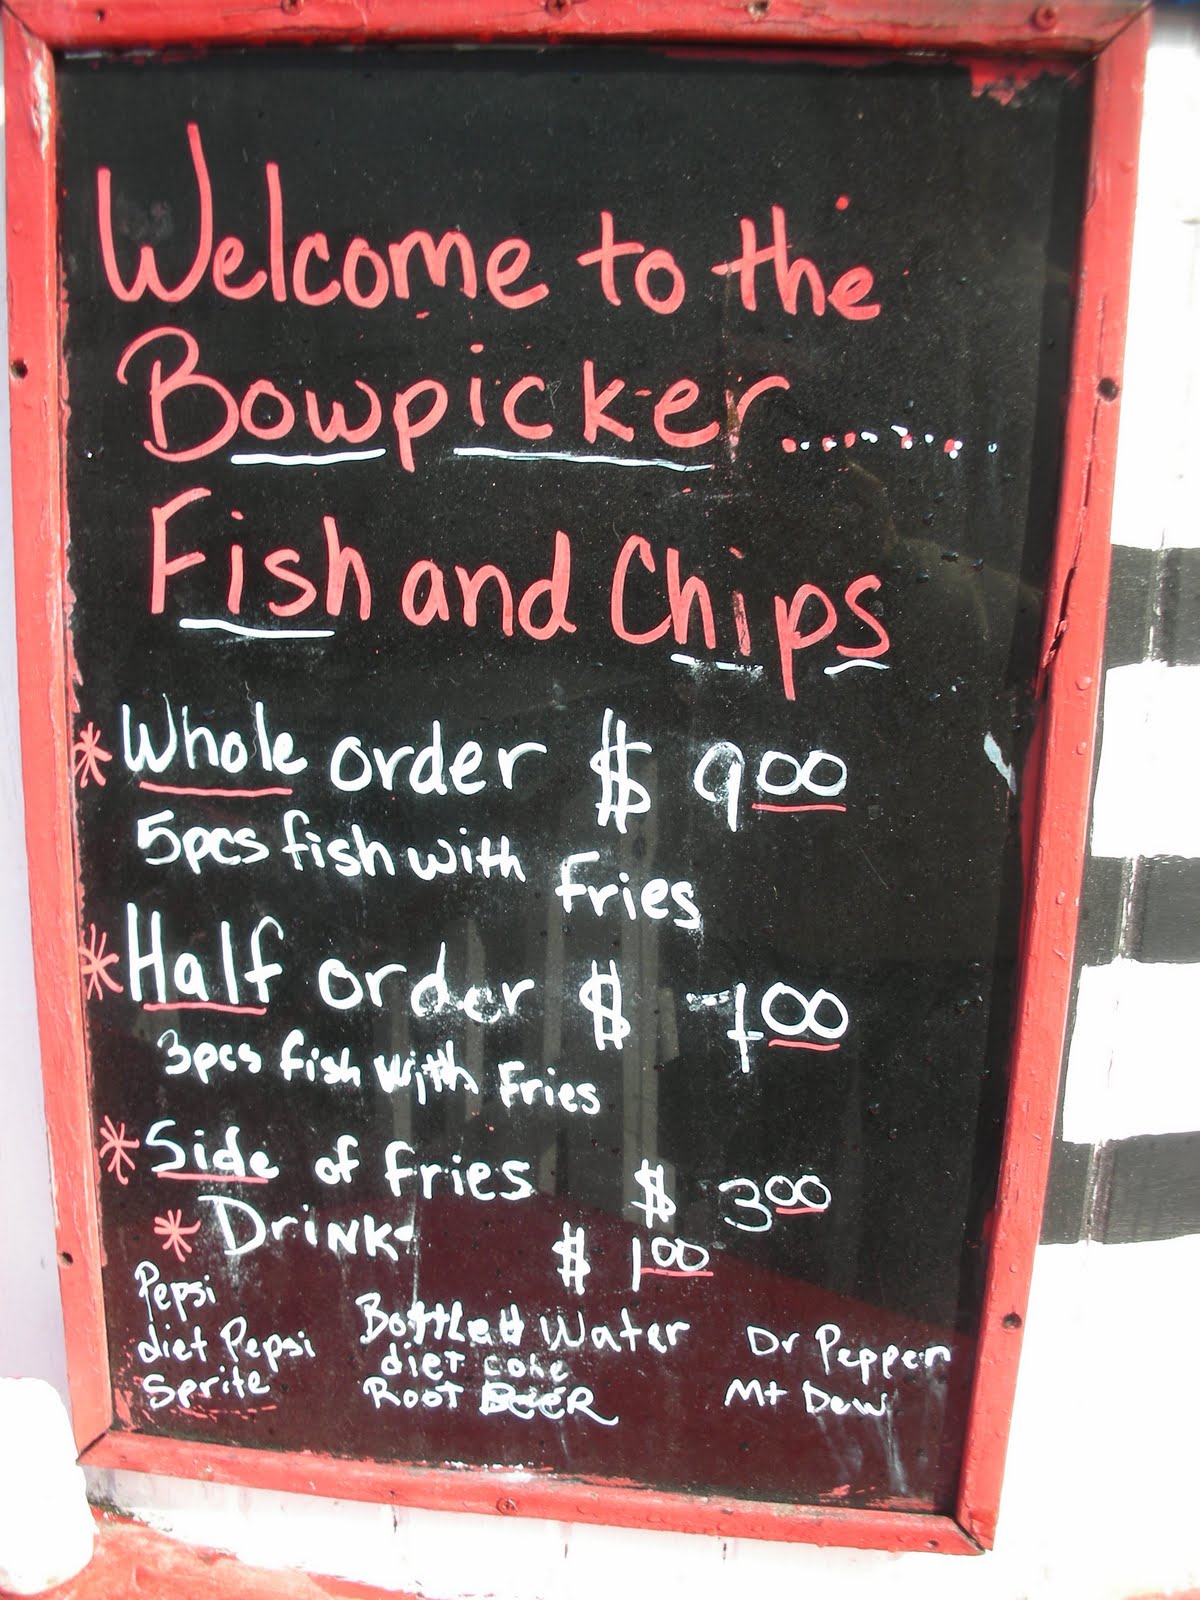 Welcome to the
Bowpicker........
Fish and Chips
* Whole order $ 9 00
5pcs fish with Fries
* Half order $ 7 00
3pcs fish with Fries
* Side of fries $ 3 00
* Drink $ 1 00
Pepsi
diet Pepsi
Sprite
Bottled Water
diet coke
Root BEER
Dr Pepper
Mt Dew